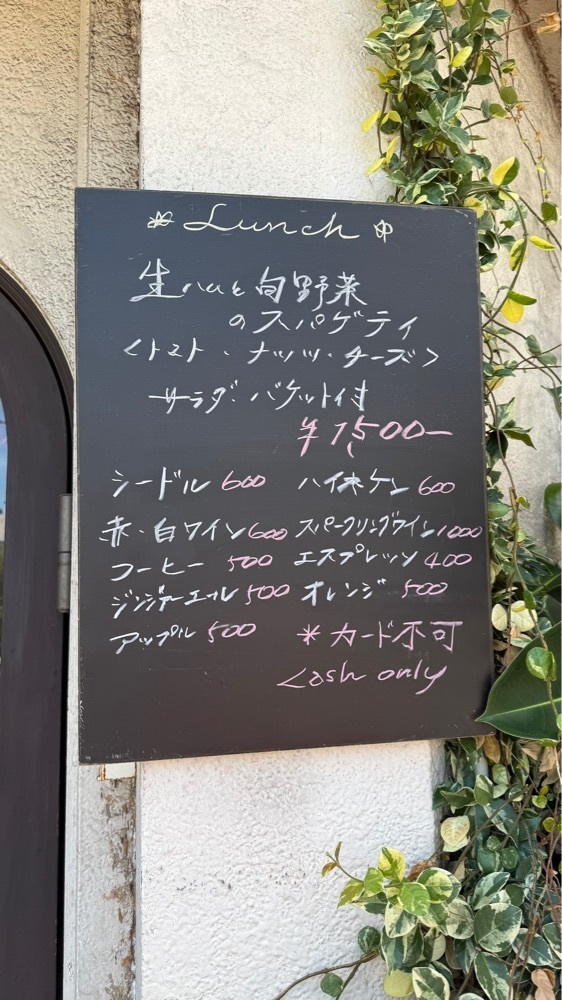 Lunch
生ハムと旬野菜
のスパゲティ
<トマト・ナッツ・チーズ>
サラダ・バケット付
¥1,500-
シードル 600 ハイネケン 600
赤・白ワイン 600 スパークリングワイン 1000
コーヒー 500 エスプレッソ 400
ジンジャーエール 500 オレンジ 500
アップル 500 *カード不可
Cash only